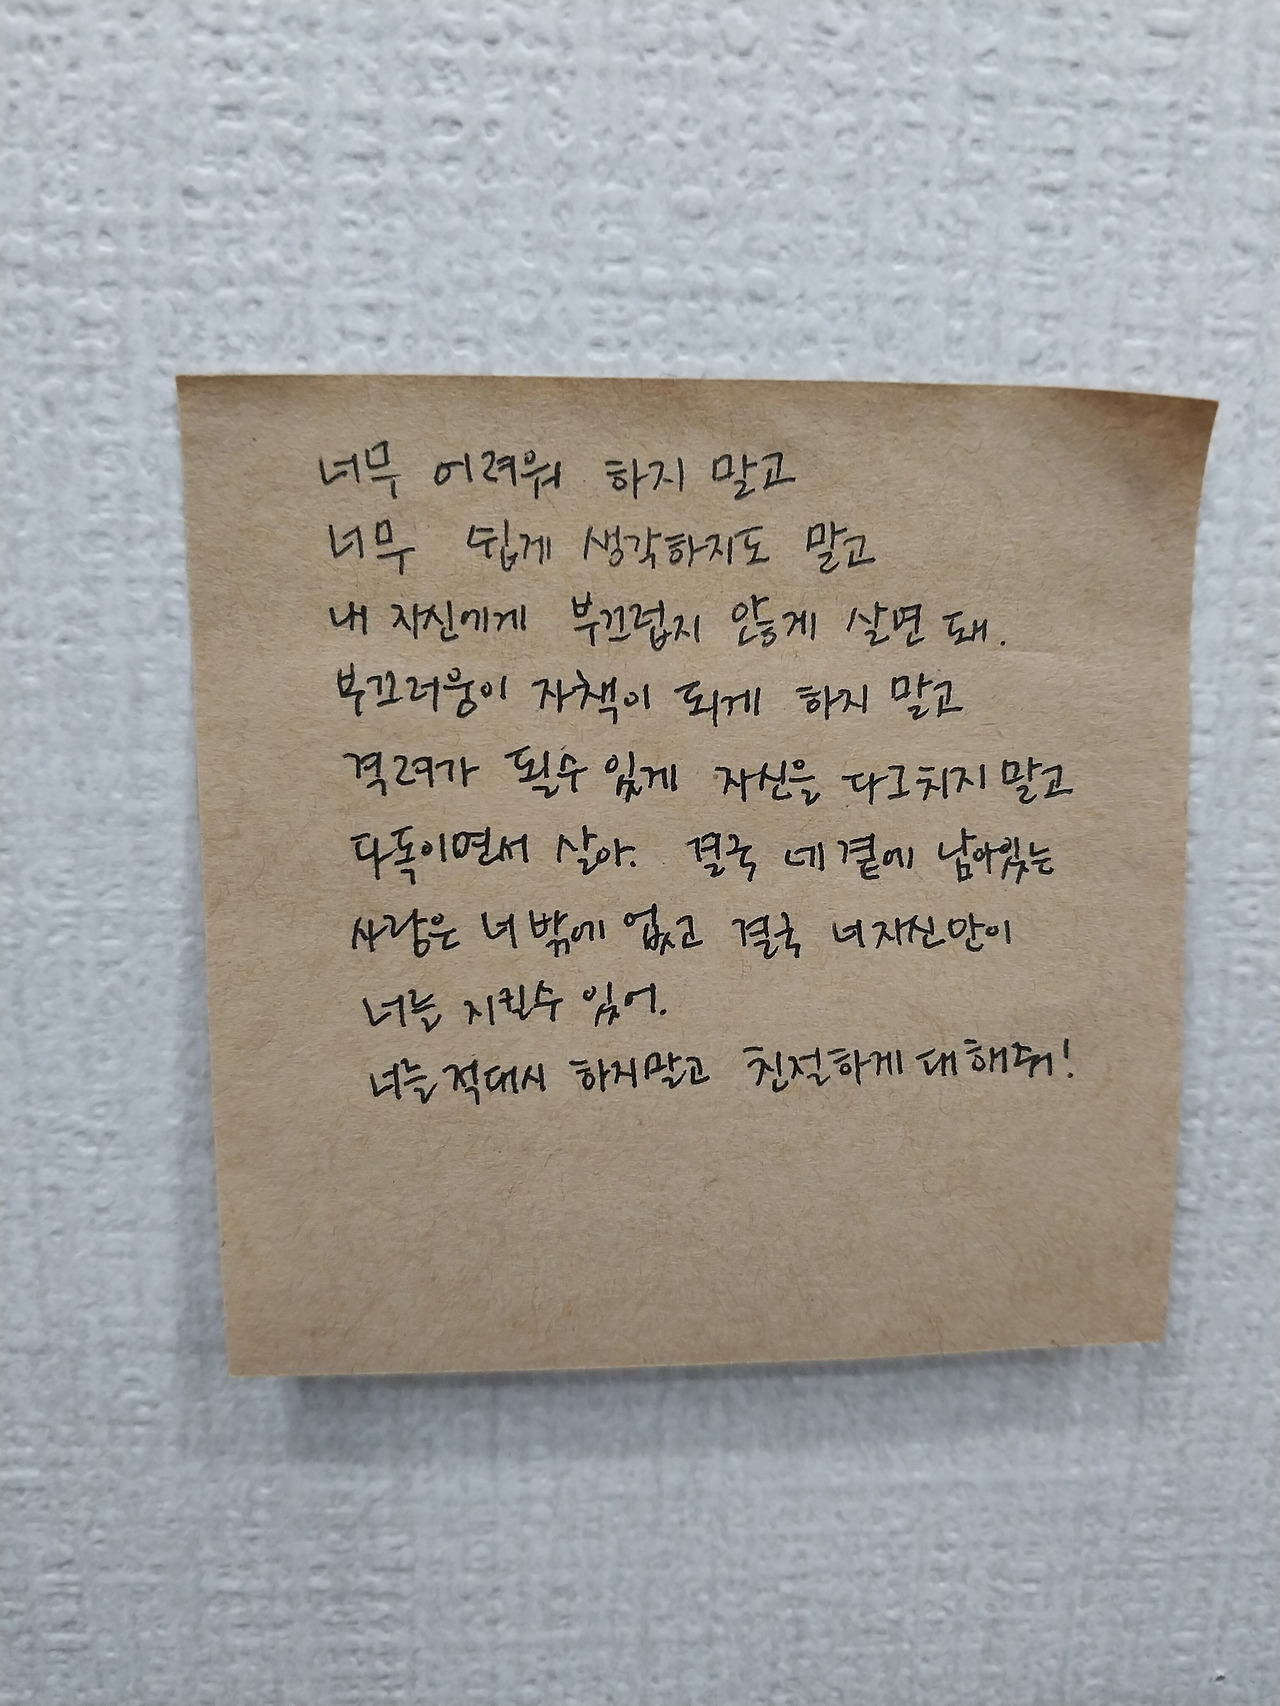 너무 어려워 하지 말고
너무 쉽게 생각하지도 말고
내 자신에게 부끄럽지 않게 살면 돼.
부끄러움이 자책이 되게 하지 말고
격려가 될수 있게 자신을 다그치지 말고
다독이면서 살아. 결국 네 곁에 남아있는
사람은 너 밖에 없고 결국 너 자신만이
너를 지킬수 있어.
너를 적대시 하지말고 친절하게 대해줘!